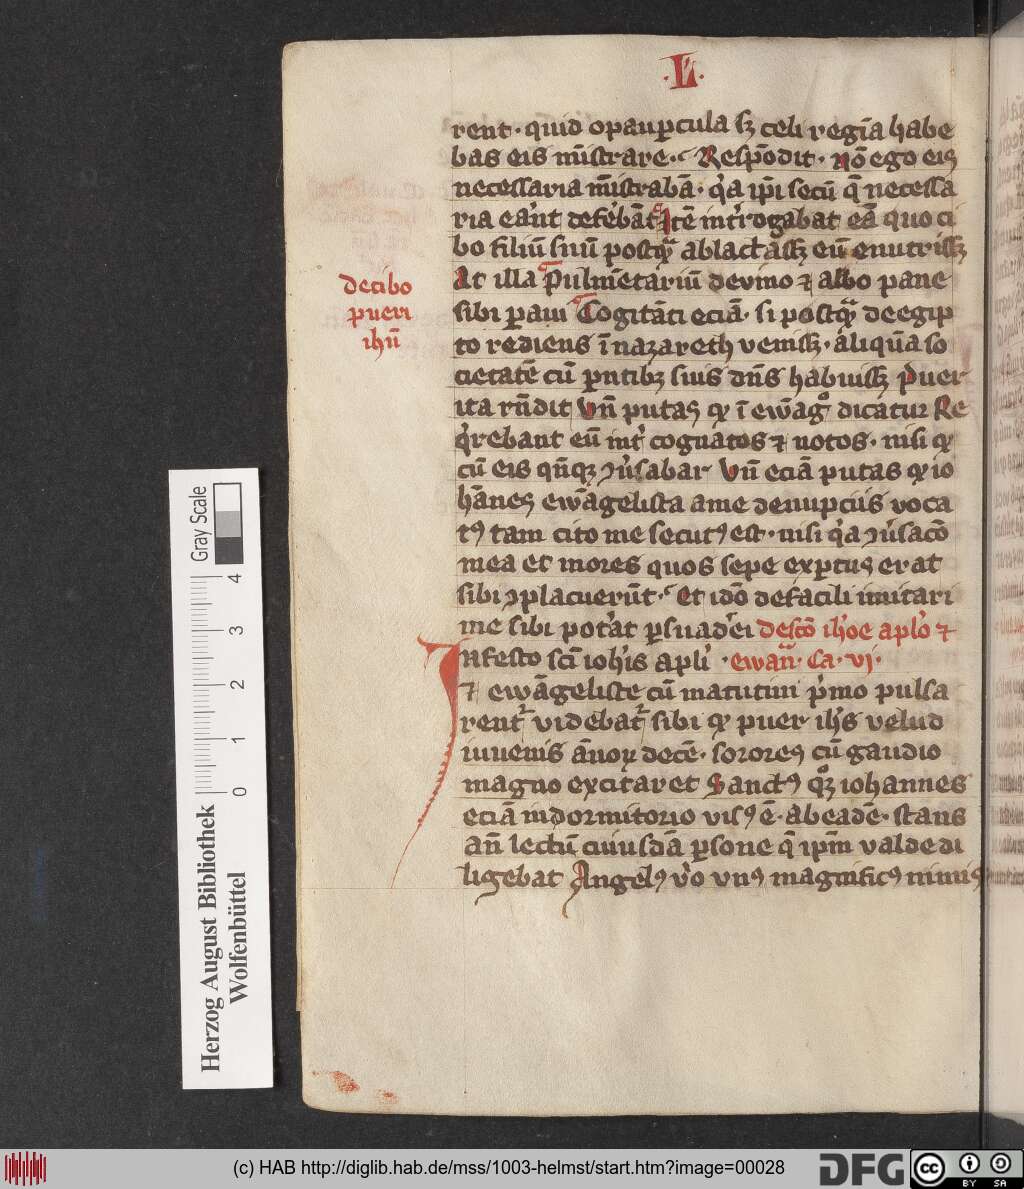 .L.
rent · quid o paup̄cula sꝫ celi regīa habe
bas eis mīstrare · Respōdit · nō ego eis
necessaria mīstrabā · q̓a ip̄i secū q̄ necessa
ria eār̄nt deferebāt Itē int̓rogabat eā quo ci
bo filiū suū postq̄ ablactassꝫ eū enutrissꝫ
At illa Pulmētariū de vino ⁊ albo pane
sibi paui Cogitāti eciā · si postq̄ de egip
to rediens ī nazareth venissꝫ · aliquā so
cietatē cū parentibꝫ suis dn̄s habuissꝫ puer
ita rn̄dit Vn̄ putas qꝫ ī ewāgᵒ dicatur Re
q̓rebant eū int̓ cognatos ⁊ notos · nisi qꝫ
cū eis qn̄qꝫ ꝯv̓sabar Vn̄ eciā putas qꝫ io
hānes ewāgelista a me de nupciis voca
tꝯ tam cito me secutꝯ est · nisi q̓a ꝯv̓sacō
mea et mores quos sepe expertus erat
sibi ꝯplacuerūt · Et idō de facili imitari
me sibi pot̓at p̄suaderi De scō ih̓oe apl̓o ⁊
In festo sc̄i ioh̓is apli · ewan̄ · Ca · vi ·
⁊ ewāgeliste cū matutini p̓mo pulsa
rent̄ videbat̄ sibi qꝫ puer ih̓s velud
iuuenis ānoꝝ decē · sorores cū gaudio
magno excitaret Sanctꝯ qᵒꝫ iohannes
eciā in dormitorio visꝯ ē · ab eadē · stans
an̄ lectū cuiusdā p̄sone q̄ ip̄m valde di
ligebat Angelꝯ v̓o vnꝯ magnificꝯ nimis
de cibo
pueri
ihū
Gray Scale
0 1 2 3 4
Herzog August Bibliothek
Wolfenbüttel
(c) HAB http://diglib.hab.de/mss/1003-helmst/start.htm?image=00028
DFG
cc BY SA